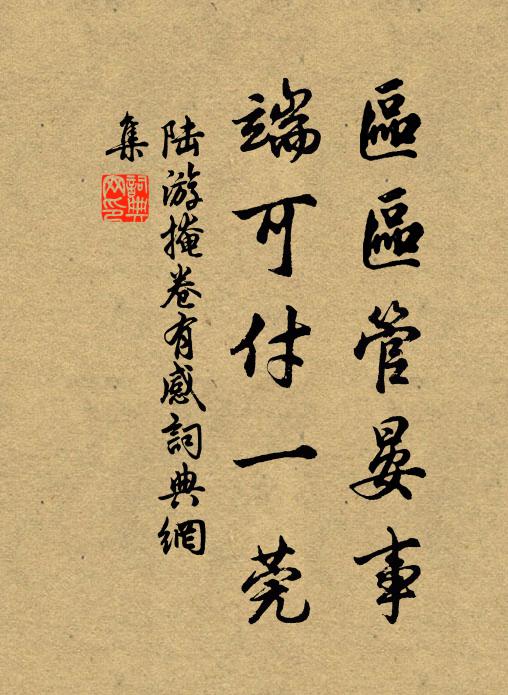 區區管晏事
端可付一莞
陸游掩卷有感詞典網
集
詞典
网印